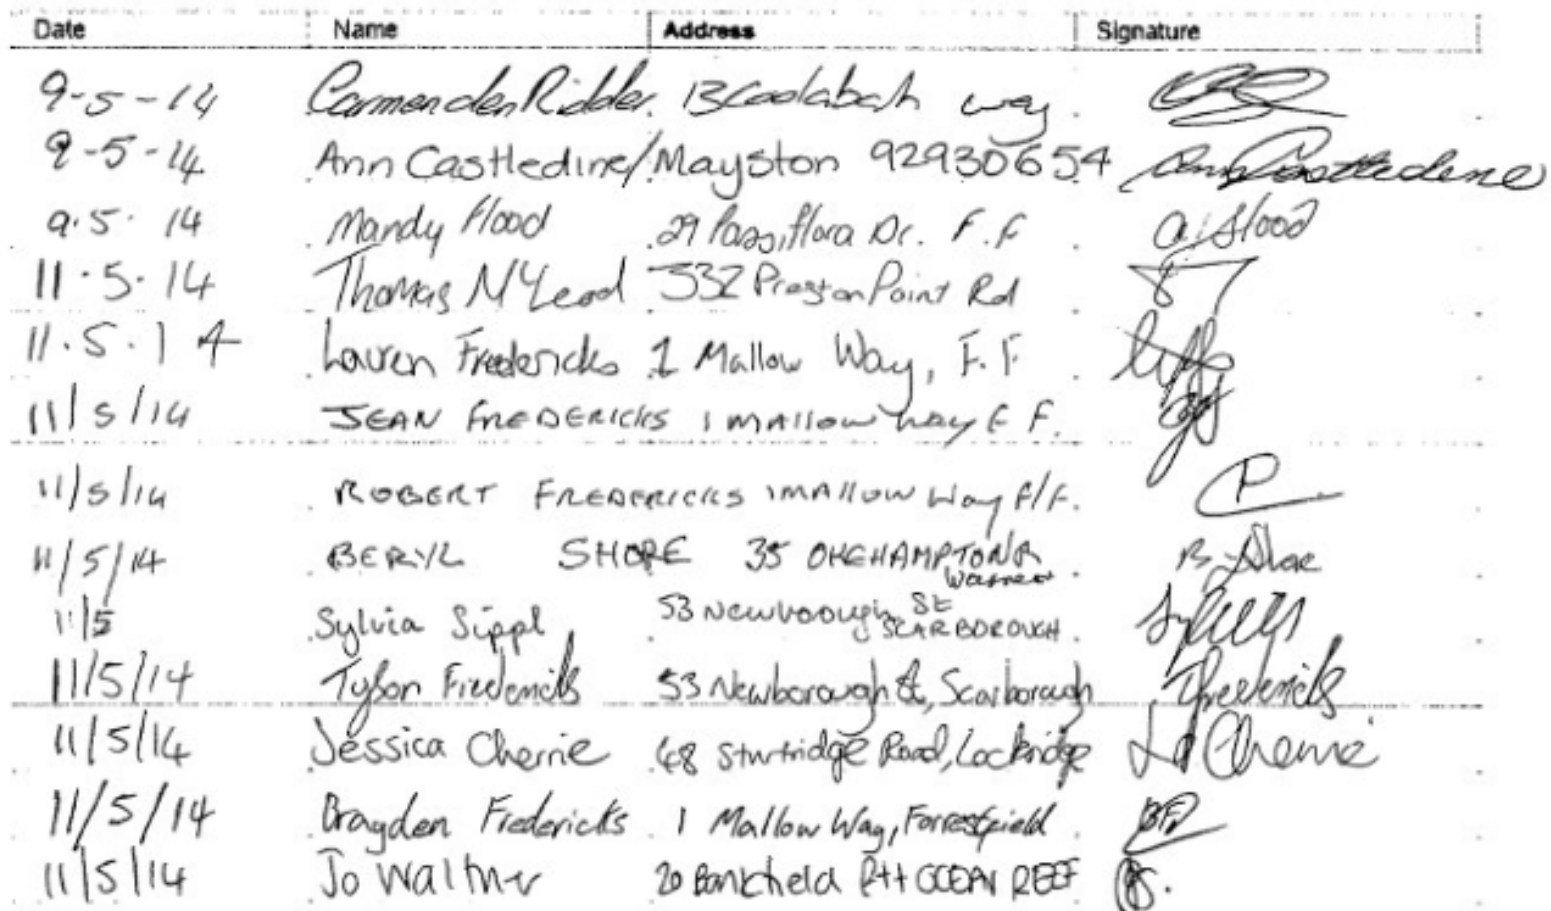 Date Name Address Signature
9-5-14 Carmen den Ridder 13 Coolabah way
9-5-14 Ann Castledine/Mayston 92930654 Ann Castledine
9.5.14 Mandy Flood 29 Passiflora Dr. F.F a. Flood
11.5.14 Thomas McLeod 332 Preston Point Rd
11.5.14 Lauren Fredericks 1 Mallow Way, F.F
11/5/14 JEAN FREDERICKS 1 MALLOW way F F.
11/5/14 ROBERT FREDERICKS 1 MALLOW Way F/F.
11/5/14 BERYL SHORE 35 OKEHAMPTON R B. Shore
11/5 Sylvia Sippl 53 Newborough St SCARBOROUGH
11/5/14 Tyson Fredericks 53 Newborough St, Scarborough TFredericks
11/5/14 Jessica Cherrie 48 Sturtridge Road, Lockridge Cherrie
11/5/14 Brayden Fredericks 1 Mallow Way, Forrestfield BF
11/5/14 Jo 20 OCEAN REEF